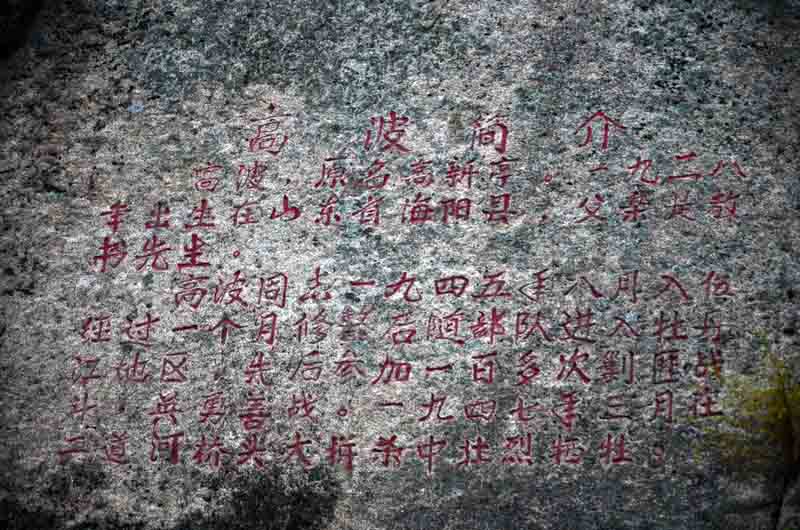 高波简介
高波，原名高新亭。一九二八
年出生在山东省海阳县，父亲是教
书先生。
高波同志一九四五年八月入伍
经过一个月修整后随部队进入牡丹
江地区，先后参加一百多次剿匪战
斗，英勇善战。一九四七年三月在
二道河桥头大拆杀中壮烈牺牲。